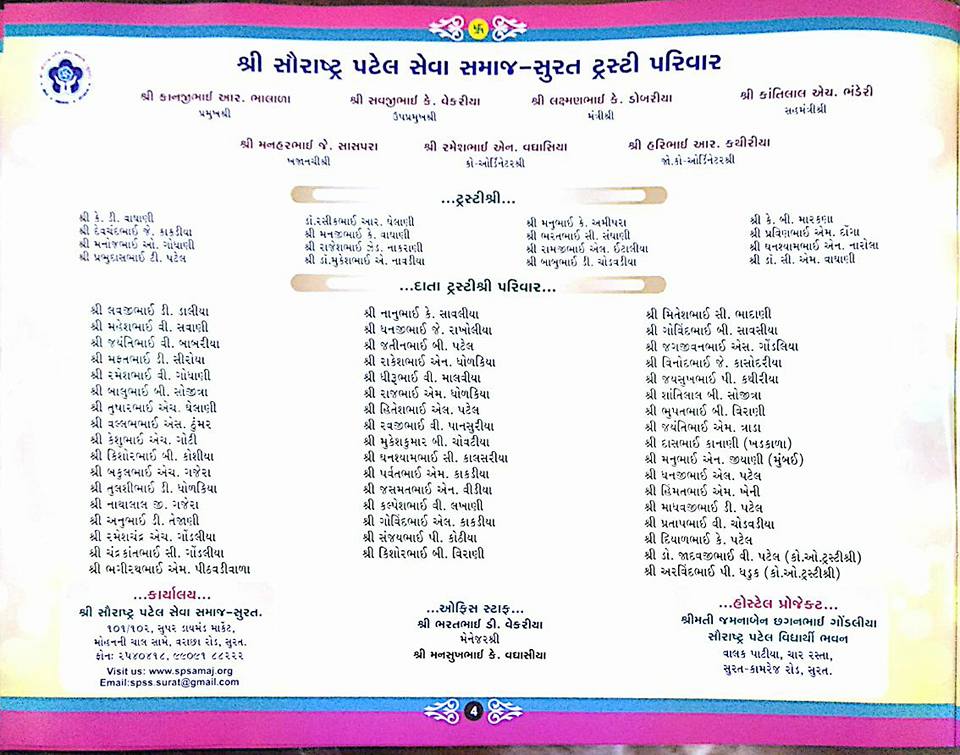 શ્રી સૌરાષ્ટ્ર પટેલ સેવા સમાજ-સુરત ટ્રસ્ટી પરિવાર
શ્રી કાનજીભાઈ આર. ભાલાળા
પ્રમુખશ્રી
શ્રી સવજીભાઈ કે. વેકરીયા
ઉપપ્રમુખશ્રી
શ્રી લક્ષ્મણભાઈ કે. ડોબરીયા
મંત્રીશ્રી
શ્રી કાંતિલાલ એચ. ભંડેરી
સહમંત્રીશ્રી
શ્રી મનહરભાઈ જે. સાસપરા
ખજાનચીશ્રી
શ્રી રમેશભાઈ એન. વઘાસિયા
કો-ઓર્ડિનેટરશ્રી
શ્રી હરિભાઈ આર. કથીરીયા
જો.કો-ઓર્ડિનેટરશ્રી
...ટ્રસ્ટીશ્રી...
શ્રી કે. ડી. વાઘાણી
શ્રી દેવચંદભાઈ જે. કાકડીયા
શ્રી મનોજભાઈ ઓ. ગોધાણી
શ્રી પ્રભુદાસભાઈ ટી. પટેલ
ડૉ.રસીકભાઈ આર. ઘેલાણી
શ્રી મનજીભાઈ કે. વાઘાણી
શ્રી રાજેશભાઈ ઝેડ. નાકરાણી
શ્રી ડૉ.મુકેશભાઈ એ. નાવડીયા
શ્રી મનુભાઈ કે. અમીપરા
શ્રી ભરતભાઈ સી. સંઘાણી
શ્રી રામજીભાઈ એલ. ઈટાલીયા
શ્રી બાબુભાઈ ડી. ચોડવડીયા
શ્રી કે. બી. મારકણા
શ્રી પ્રવિણભાઈ એમ. દોંગા
શ્રી ઘનશ્યામભાઈ એન. નારોલા
શ્રી ડૉ. સી. એમ. વાઘાણી
...દાતા ટ્રસ્ટીશ્રી પરિવાર...
શ્રી લવજીભાઈ ડી. ડાલીયા
શ્રી મહેશભાઈ વી. સવાણી
શ્રી જયંતિભાઈ વી. બાબરીયા
શ્રી મફતભાઈ ડી. સીરોયા
શ્રી રમેશભાઈ વી. ગોધાણી
શ્રી બાલુભાઈ બી. સોજીત્રા
શ્રી તુષારભાઈ એચ. ઘેલાણી
શ્રી વલ્લભભાઈ એસ. ઠુંમર
શ્રી કેશુભાઈ એચ. ગોટી
શ્રી કિશોરભાઈ બી. કોશીયા
શ્રી બકુલભાઈ એચ. ગજેરા
શ્રી તુલશીભાઈ ડી. ધોળકિયા
શ્રી નાથાલાલ જી. ગજેરા
શ્રી અનુભાઈ ડી. તેજાણી
શ્રી રમેશચંદ્ર એચ. ગોંડલીયા
શ્રી ચંદ્રકાંતભાઈ સી. ગોંડલીયા
શ્રી ભગીરથભાઈ એમ. પીઠવડીવાળા
શ્રી નાનુભાઈ કે. સાવલીયા
શ્રી ધનજીભાઈ જે. રાખોલીયા
શ્રી જતીનભાઈ બી. પટેલ
શ્રી રાકેશભાઈ એન. ધોળકિયા
શ્રી ધીરૂભાઈ વી. માલવીયા
શ્રી રાજભાઈ એમ. ધોળકિયા
શ્રી હિતેશભાઈ એલ. પટેલ
શ્રી રવજીભાઈ વી. પાનસુરીયા
શ્રી મુકેશકુમાર બી. ચોવટીયા
શ્રી ઘનશ્યામભાઈ સી. કાલસરીયા
શ્રી પર્વતભાઈ એમ. કાકડીયા
શ્રી જસમતભાઈ એન. વીડીયા
શ્રી કલ્પેશભાઈ વી. લખાણી
શ્રી ગોવિંદભાઈ એલ. કાકડીયા
શ્રી સંજયભાઈ પી. કોઠીયા
શ્રી કિશોરભાઈ બી. વિરાણી
શ્રી મિતેશભાઈ સી. ભાદાણી
શ્રી ગોવિંદભાઈ બી. સાવસીયા
શ્રી જગજીવનભાઈ એસ. ગોંડલિયા
શ્રી વિનોદભાઈ જે. કાસોદરીયા
શ્રી જયસુખભાઈ પી. કથીરીયા
શ્રી શાંતિલાલ બી. સોજીત્રા
શ્રી ભુપતભાઈ બી. વિરાણી
શ્રી જયંતિભાઈ એમ. ત્રાડા
શ્રી દાસભાઈ કાનાણી (ખડકાળા)
શ્રી મનુભાઈ એન. જીયાણી (મુંબઈ)
શ્રી ધનજીભાઈ એલ. પટેલ
શ્રી હિંમતભાઈ એમ. ખેની
શ્રી માધવજીભાઈ ડી. પટેલ
શ્રી પ્રતાપભાઈ વી. ચોડવડીયા
શ્રી દિયાળભાઈ કે. પટેલ
શ્રી ડૉ. જાદવજીભાઈ વી. પટેલ (કો.ઓ.ટ્રસ્ટીશ્રી)
શ્રી અરવિંદભાઈ પી. ધડુક (કો.ઓ.ટ્રસ્ટીશ્રી)
...કાર્યાલય...
શ્રી સૌરાષ્ટ્ર પટેલ સેવા સમાજ-સુરત.
૧૦૧/૧૦૨, સુપર ડાયમંડ માર્કેટ,
મોહનની ચાલ સામે, વરાછા રોડ, સુરત.
ફોનઃ ૨૫૪૦૪૧૮, ૯૯૦૯૧ ૮૮૨૨૨
Visit us: www.spsamaj.org
Email:spss.surat@gmail.com
...ઓફિસ સ્ટાફ...
શ્રી ભરતભાઈ ડી. વેકરીયા
મેનેજરશ્રી
શ્રી મનસુખભાઈ કે. વઘાસીયા
...હોસ્ટેલ પ્રોજેક્ટ...
શ્રીમતી જમનાબેન છગનભાઈ ગોંડલીયા
સૌરાષ્ટ્ર પટેલ વિદ્યાર્થી ભવન
વાલક પાટીયા, ચાર રસ્તા,
સુરત-કામરેજ રોડ, સુરત.
4